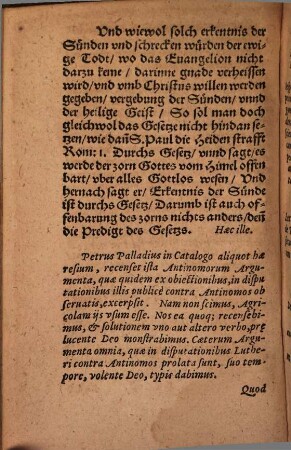 Vnd wiewol solch erkentnis der
Sünden vnd schrecken würden der ewi-
ge Todt/ wo das Euangelion nicht
darzu keme/ darinne gnade verheissen
wird/ vnd vmb Christus willen werden
gegeben/ vergebung der Sünden/ vnnd
der heilige Geist/ So sol man doch
gleichwol das Gesetze nicht hindan se-
tzen/ wie dañ S. Paul die Heiden strafft
Rom: 1. Durchs Gesetz/ vnnd sagt/ es
werde der zorn Gottes vom Himel offen
bart/ vber alles Gottlos wesen/ Vnd
hernach sagt er/ Erkentnis der Sünde
ist durchs Gesetz/ Darumb ist auch of-
fenbarung des zorns nichts anders/ deñ
die Predigt des Gesetzs. Hæc ille.
Petrus Palladius in Catalogo aliquot hæ
resium, recenset ista Antinomorum Argu-
menta, quæ quidem ex obiectionibus, in dispu
tationibus illis publicè contra Antinomos ob
seruatis, excerpsit. Nam non scimus, Agri-
colam ijs vsum esse. Nos ea quoq; recensebi-
mus, & solutionem vno aut altero verbo, præ
lucente Deo monstrabimus. Cæterum Argu
menta omnia, quæ in disputationibus Luthe-
ri contra Antinomos prolata sunt, suo tem-
pore, volente Deo, typis dabimus.
Quod